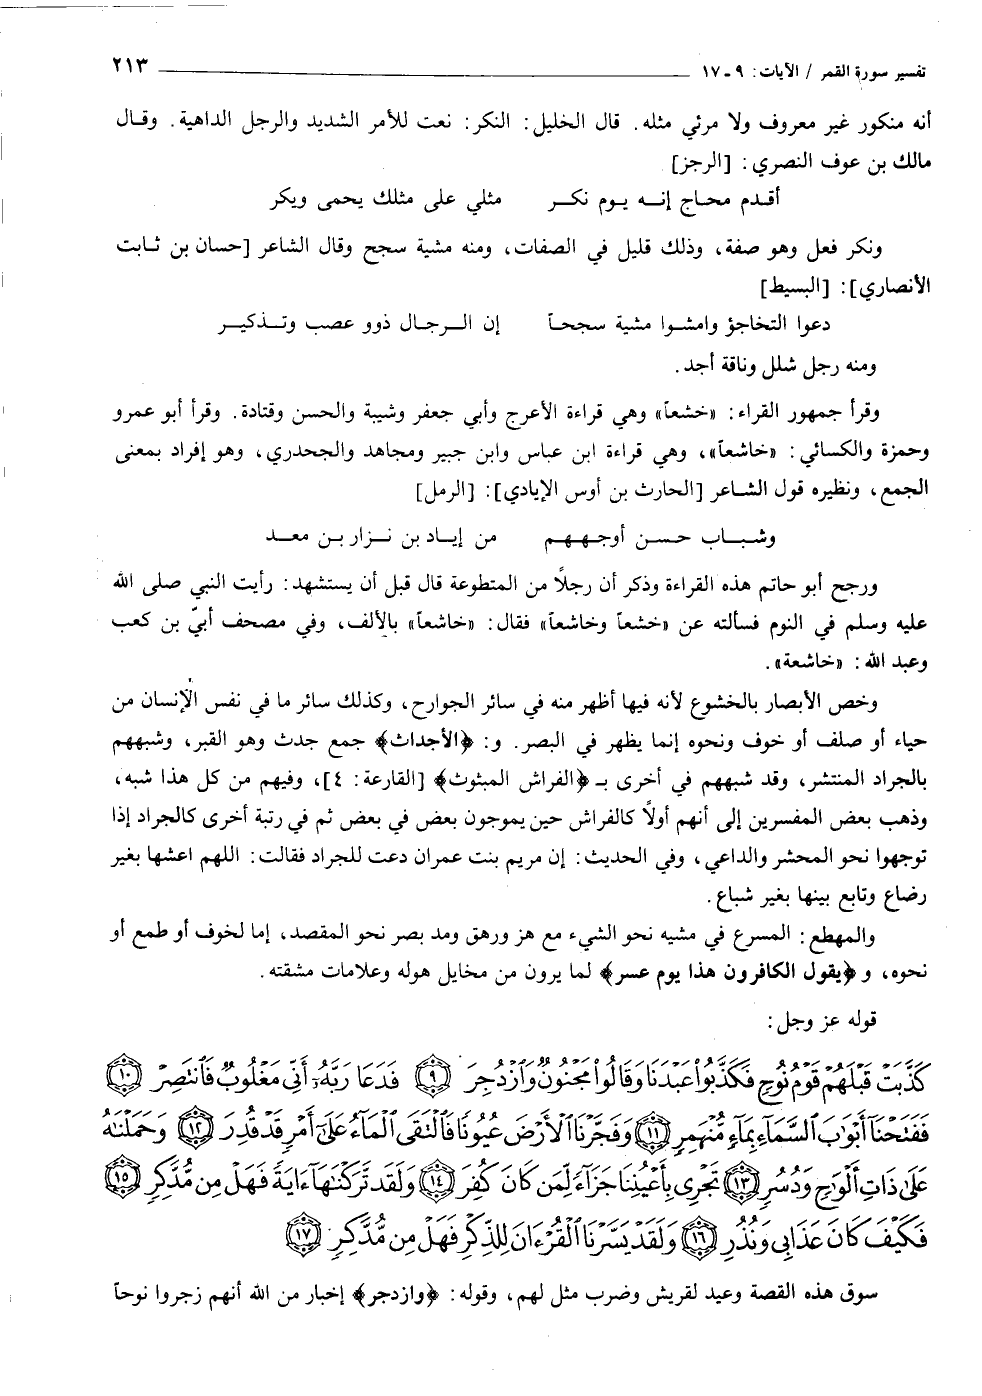 تفسير سورة القمر / الآيات: ٩ - ١٧ ٢١٣
أنه منكور غير معروف ولا مرئي مثله. قال الخليل: النكر: نعت للأمر الشديد والرجل الداهية. وقال
مالك بن عوف النصري: [الرجز]
أقدم محاج إنه يوم نكر مثلي على مثلك يحمى ويكر
ونكر فعل وهو صفة، وذلك قليل في الصفات، ومنه مشية سجح وقال الشاعر [حسان بن ثابت
الأنصاري]: [البسيط]
دعوا التخاجؤ وامشوا مشية سجحاً إن الرجال ذوو عصب وتذكير
ومنه رجل شلل وناقة أجد.
وقرأ جمهور القراء: «خشعاً» وهي قراءة الأعرج وأبي جعفر وشيبة والحسن وقتادة. وقرأ أبو عمرو
وحمزة والكسائي: «خاشعاً»، وهي قراءة ابن عباس وابن جبير ومجاهد والجحدري، وهو إفراد بمعنى
الجمع، ونظيره قول الشاعر [الحارث بن أوس الإيادي]: [الرمل]
وشباب حسن أوجههم من إياد بن نزار بن معد
ورجح أبو حاتم هذه القراءة وذكر أن رجلاً من المتطوعة قال قبل أن يستشهد: رأيت النبي صلى الله
عليه وسلم في النوم فسألته عن «خشعاً وخاشعاً» فقال: «خاشعاً» بالألف، وفي مصحف أبيّ بن كعب
وعبد الله: «خاشعة».
وخص الأبصار بالخشوع لأنه فيها أظهر منه في سائر الجوارح، وكذلك سائر ما في نفس الإنسان من
حياء أو صلف أو خوف ونحوه إنما يظهر في البصر. و: ﴿الأجداث﴾ جمع جدث وهو القبر، وشبههم
بالجراد المنتشر، وقد شبههم في أخرى بـ ﴿الفراش المبثوث﴾ [القارعة: ٤]، وفيهم من كل هذا شبه،
وذهب بعض المفسرين إلى أنهم أولاً كالفراش حين يموجون بعض في بعض ثم في رتبة أخرى كالجراد إذا
توجهوا نحو المحشر والداعي، وفي الحديث: إن مريم بنت عمران دعت للجراد فقالت: اللهم اعشها بغير
رضاع وتابع بينها بغير شباع.
والمهطع: المسرع في مشيه نحو الشيء مع هز ورهق ومد بصر نحو المقصد، إما لخوف أو طمع أو
نحوه، و ﴿يقول الكافرون هذا يوم عسر﴾ لما يرون من مخايل هوله وعلامات مشقته.
قوله عز وجل:
كَذَّبَتْ قَبْلَهُمْ قَوْمُ نُوحٍ فَكَذَّبُوا عَبْدَنَا وَقَالُوا مَجْنُونٌ وَازْدُجِرَ ﴿٩﴾ فَدَعَا رَبَّهُ أَنِّي مَغْلُوبٌ فَانْتَصِرْ ﴿١٠﴾
فَفَتَحْنَا أَبْوَابَ السَّمَاءِ بِمَاءٍ مُنْهَمِرٍ ﴿١١﴾ وَفَجَّرْنَا الْأَرْضَ عُيُونًا فَالْتَقَى الْمَاءُ عَلَى أَمْرٍ قَدْ قُدِرَ ﴿١٢﴾ وَحَمَلْنَاهُ
عَلَى ذَاتِ أَلْوَاحٍ وَدُسُرٍ ﴿١٣﴾ تَجْرِي بِأَعْيُنِنَا جَزَاءً لِمَنْ كَانَ كُفِرَ ﴿١٤﴾ وَلَقَدْ تَرَكْنَاهَا آيَةً فَهَلْ مِنْ مُدَّكِرٍ ﴿١٥﴾
فَكَيْفَ كَانَ عَذَابِي وَنُذُرِ ﴿١٦﴾ وَلَقَدْ يَسَّرْنَا الْقُرْآنَ لِلذِّكْرِ فَهَلْ مِنْ مُدَّكِرٍ ﴿١٧﴾
سوق هذه القصة وعيد لقريش وضرب مثل لهم، وقوله: ﴿وازدجر﴾ إخبار من الله أنهم زجروا نوحاً